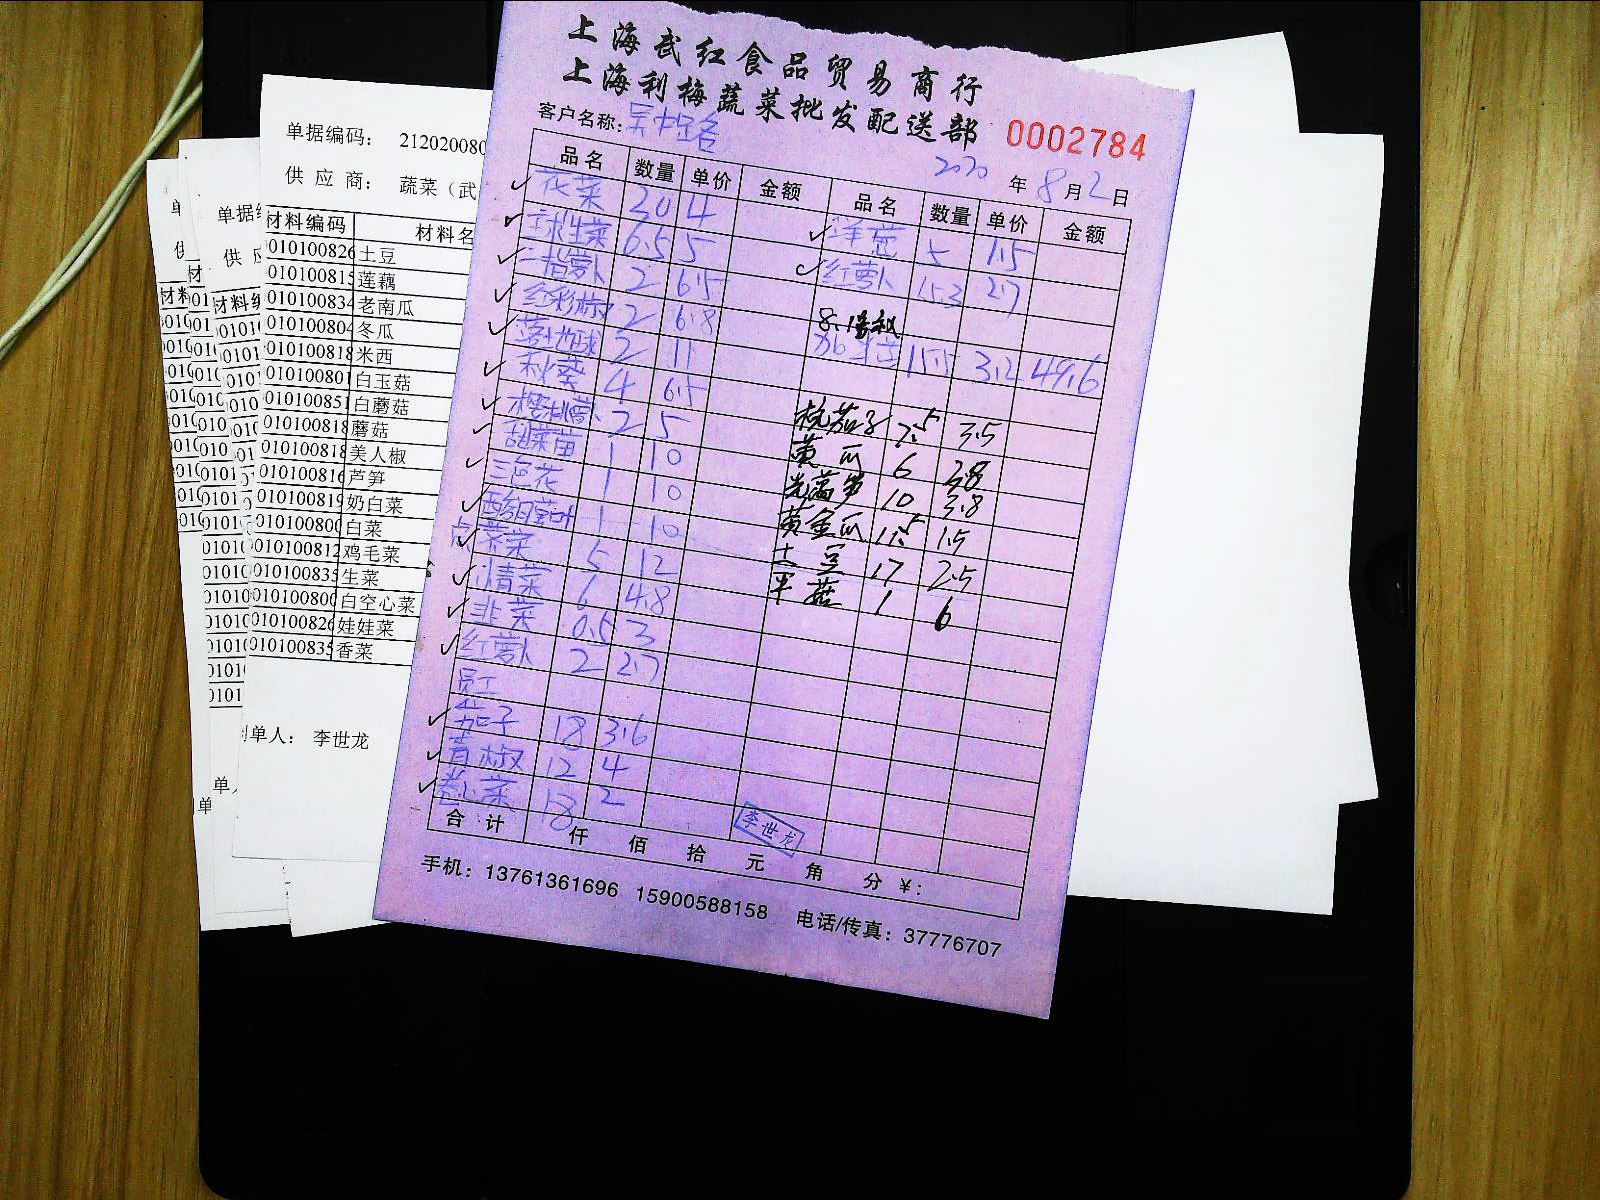 上海武红食品贸易商行
上海利梅蔬菜批发配送部
0002784
客户名称:
2020年8月2日
品名 数量 单价 金额 品名 数量 单价 金额
花菜 20 4
球生菜 6.5 5 洋葱 5 1.5
三指萝卜 2 6.5 红萝卜 15.3 2.7
红彩椒 2 6.8
2 11 15.5 3.2 49.6
秋葵 4 6.5
樱桃萝卜 2 5 杭茄子 7.5 3.5
甜菜苗 1 10 黄瓜 6 2.8
三色花 1 10 光莴笋 10 3.8
1 10 黄金瓜 1.5
荠菜 5 12 土豆 17 2.5
6 4.8 平菇 1 6
韭菜 0.5 3
红萝卜 2 2.7
员工
茄子 18 3.6
青椒 12 4
卷心菜 18 2
李世龙
合计 仟 佰 拾 元 角 分 ¥:
手机: 13761361696 15900588158 电话/传真: 37776707
单据编码: 212020080
供应商: 蔬菜（武
材料编码 材料名
010100826 土豆
010100815 莲藕
010100834 老南瓜
010100804 冬瓜
010100818 米西
010100801 白玉菇
010100851 白蘑菇
010100818 蘑菇
010100818 美人椒
010100816 芦笋
010100819 奶白菜
010100800 白菜
010100812 鸡毛菜
010100835 生菜
010100800 白空心菜
010100826 娃娃菜
010100835 香菜
制单人: 李世龙